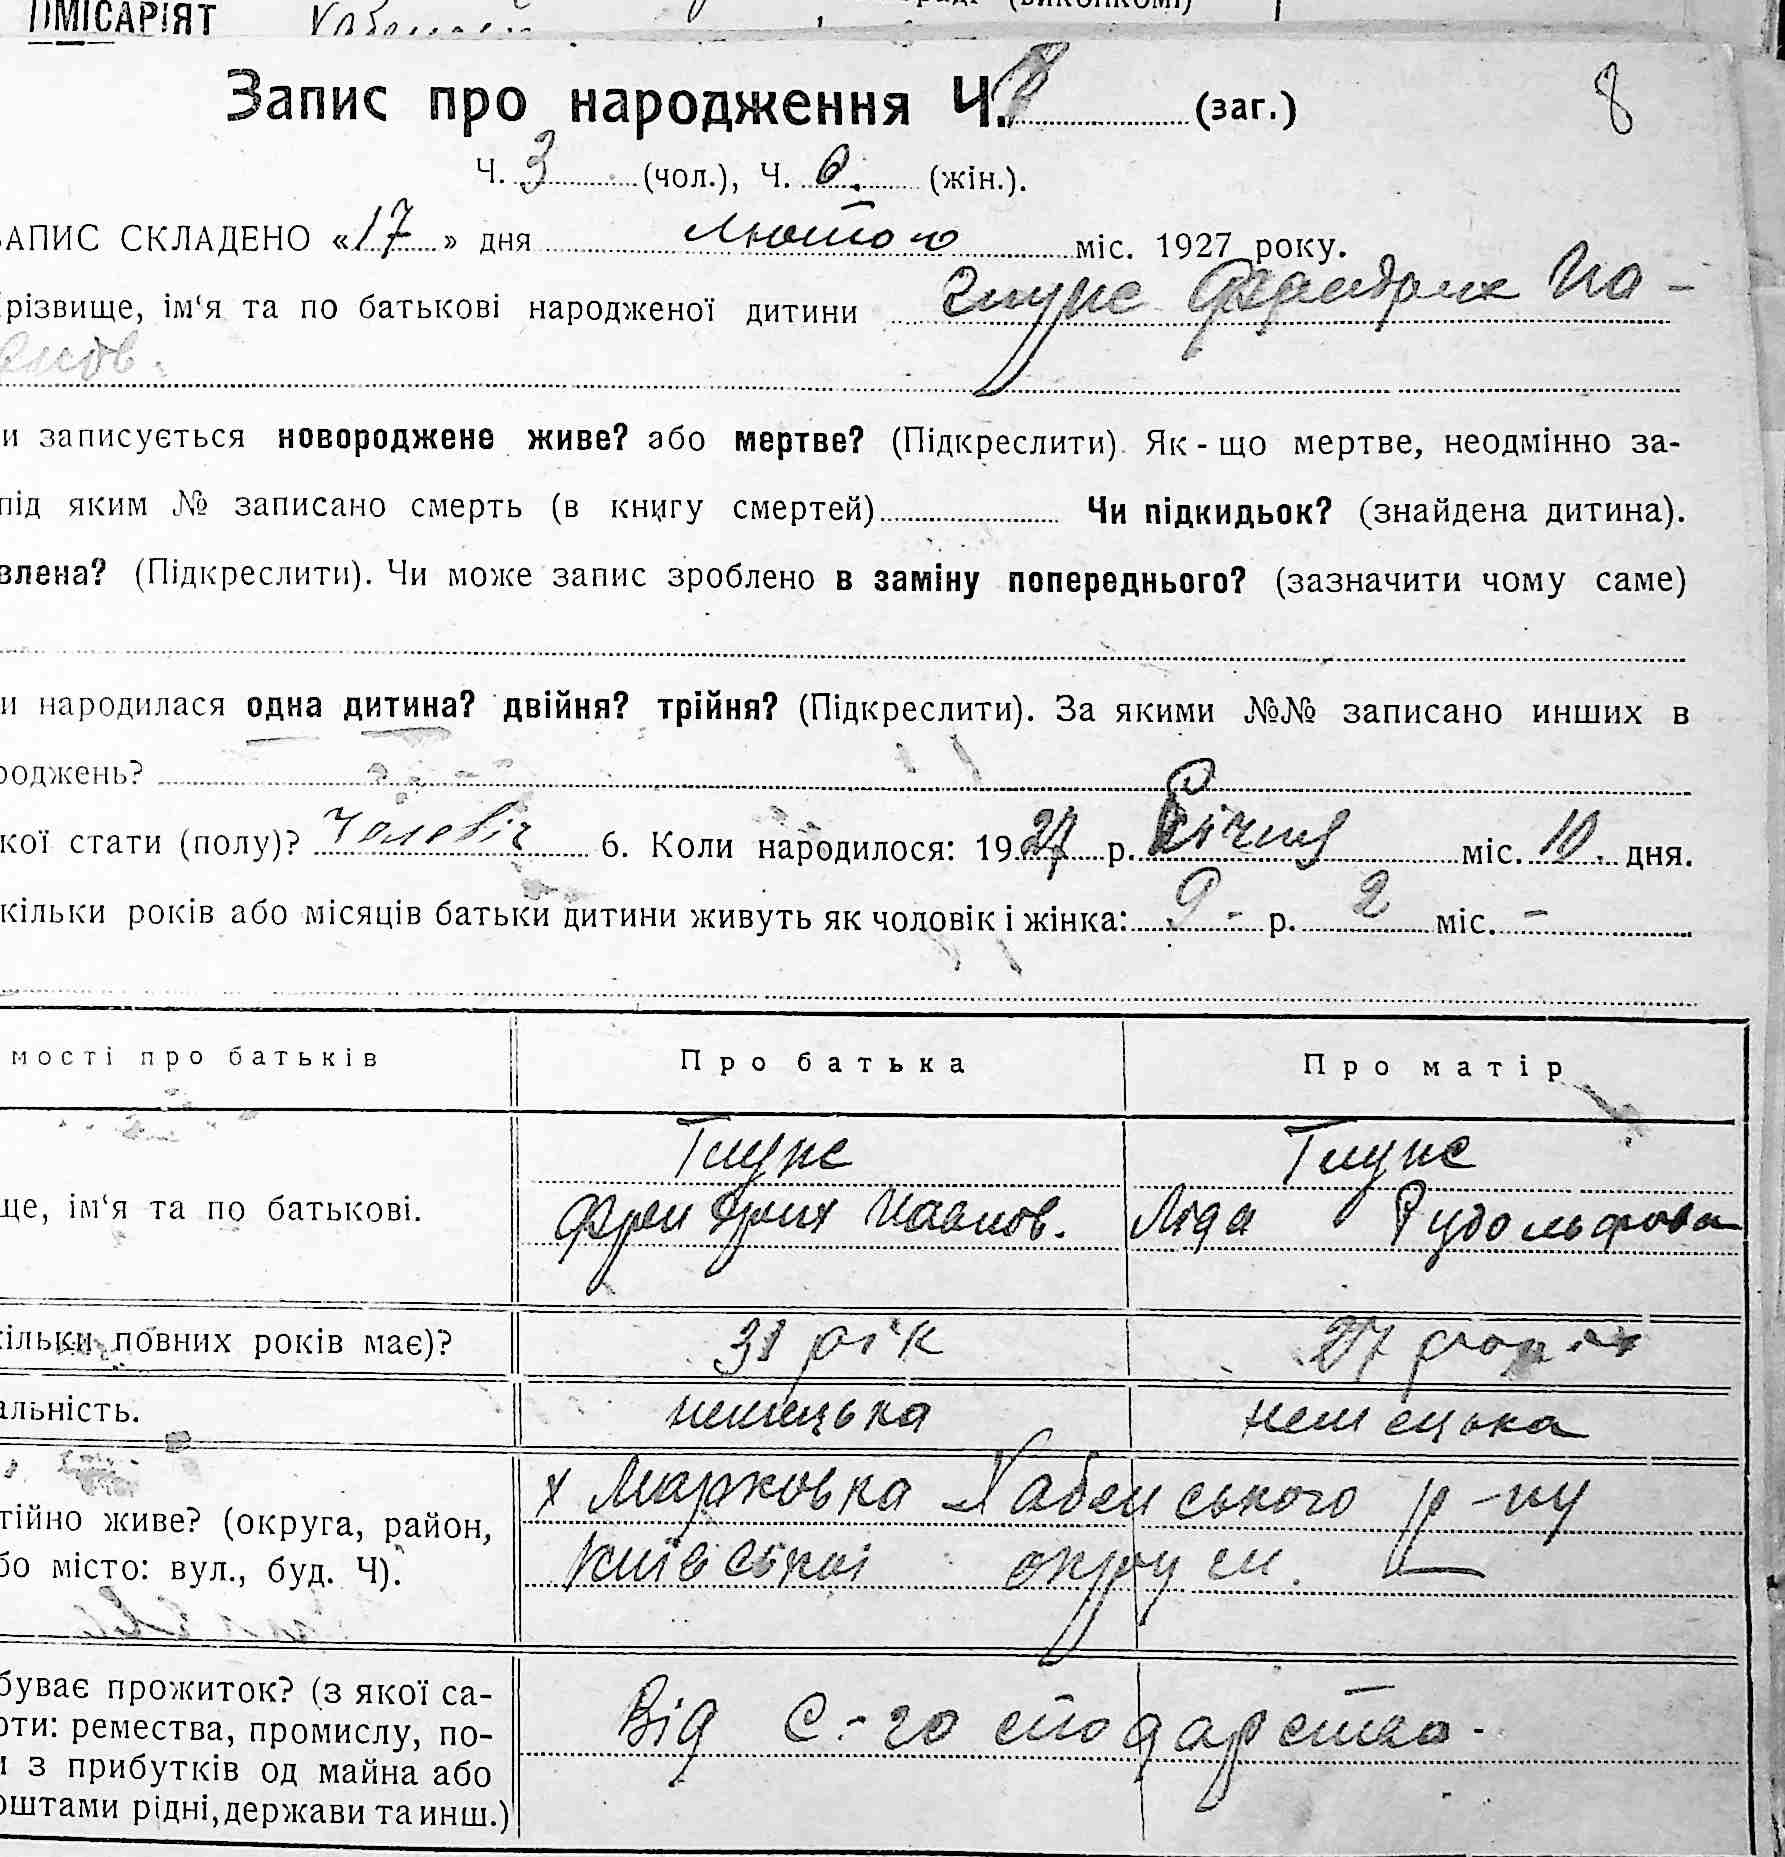 ПМІСАРІЯТ
Запис про народження Ч. 8 (заг.) 8
Ч. 3 (чол.), Ч. 0. (жін.).
ЗАПИС СКЛАДЕНО «17» дня лютого міс. 1927 року.
різвище, ім‘я та по батькові народженої дитини
и записується новороджене живе? або мертве? (Підкреслити). Як-що мертве, неодмінно за-
під яким № записано смерть (в книгу смертей) Чи підкидьок? (знайдена дитина).
влена? (Підкреслити). Чи може запис зроблено в заміну попереднього? (зазначити чому саме)
и народилася одна дитина? двійня? трійня? (Підкреслити). За якими №№ записано инших в
роджень?
кої стати (полу)? Чоловіч 6. Коли народилося: 1927 р. Січня міс. 10. дня.
кільки років або місяців батьки дитини живуть як чоловік і жінка: 9 - р. 2 міс. -
мості про батьків Про батька Про матір
Глупе Глупе
ще, ім‘я та по батькові. Фрейдрих Иванов. Ліда Рудольфовна
кільки повних років має)? 31 рік 27
альність. немецька немецька
х Марковка Хабенського р-ну
тійно живе? (округа, район,
бо місто: вул., буд. Ч). Київської округи.
буває прожиток? (з якої са-
оти: ремества, промислу, по- Від с.-господарства -
и з прибутків од майна або
оштами рідні, держави та инш.)